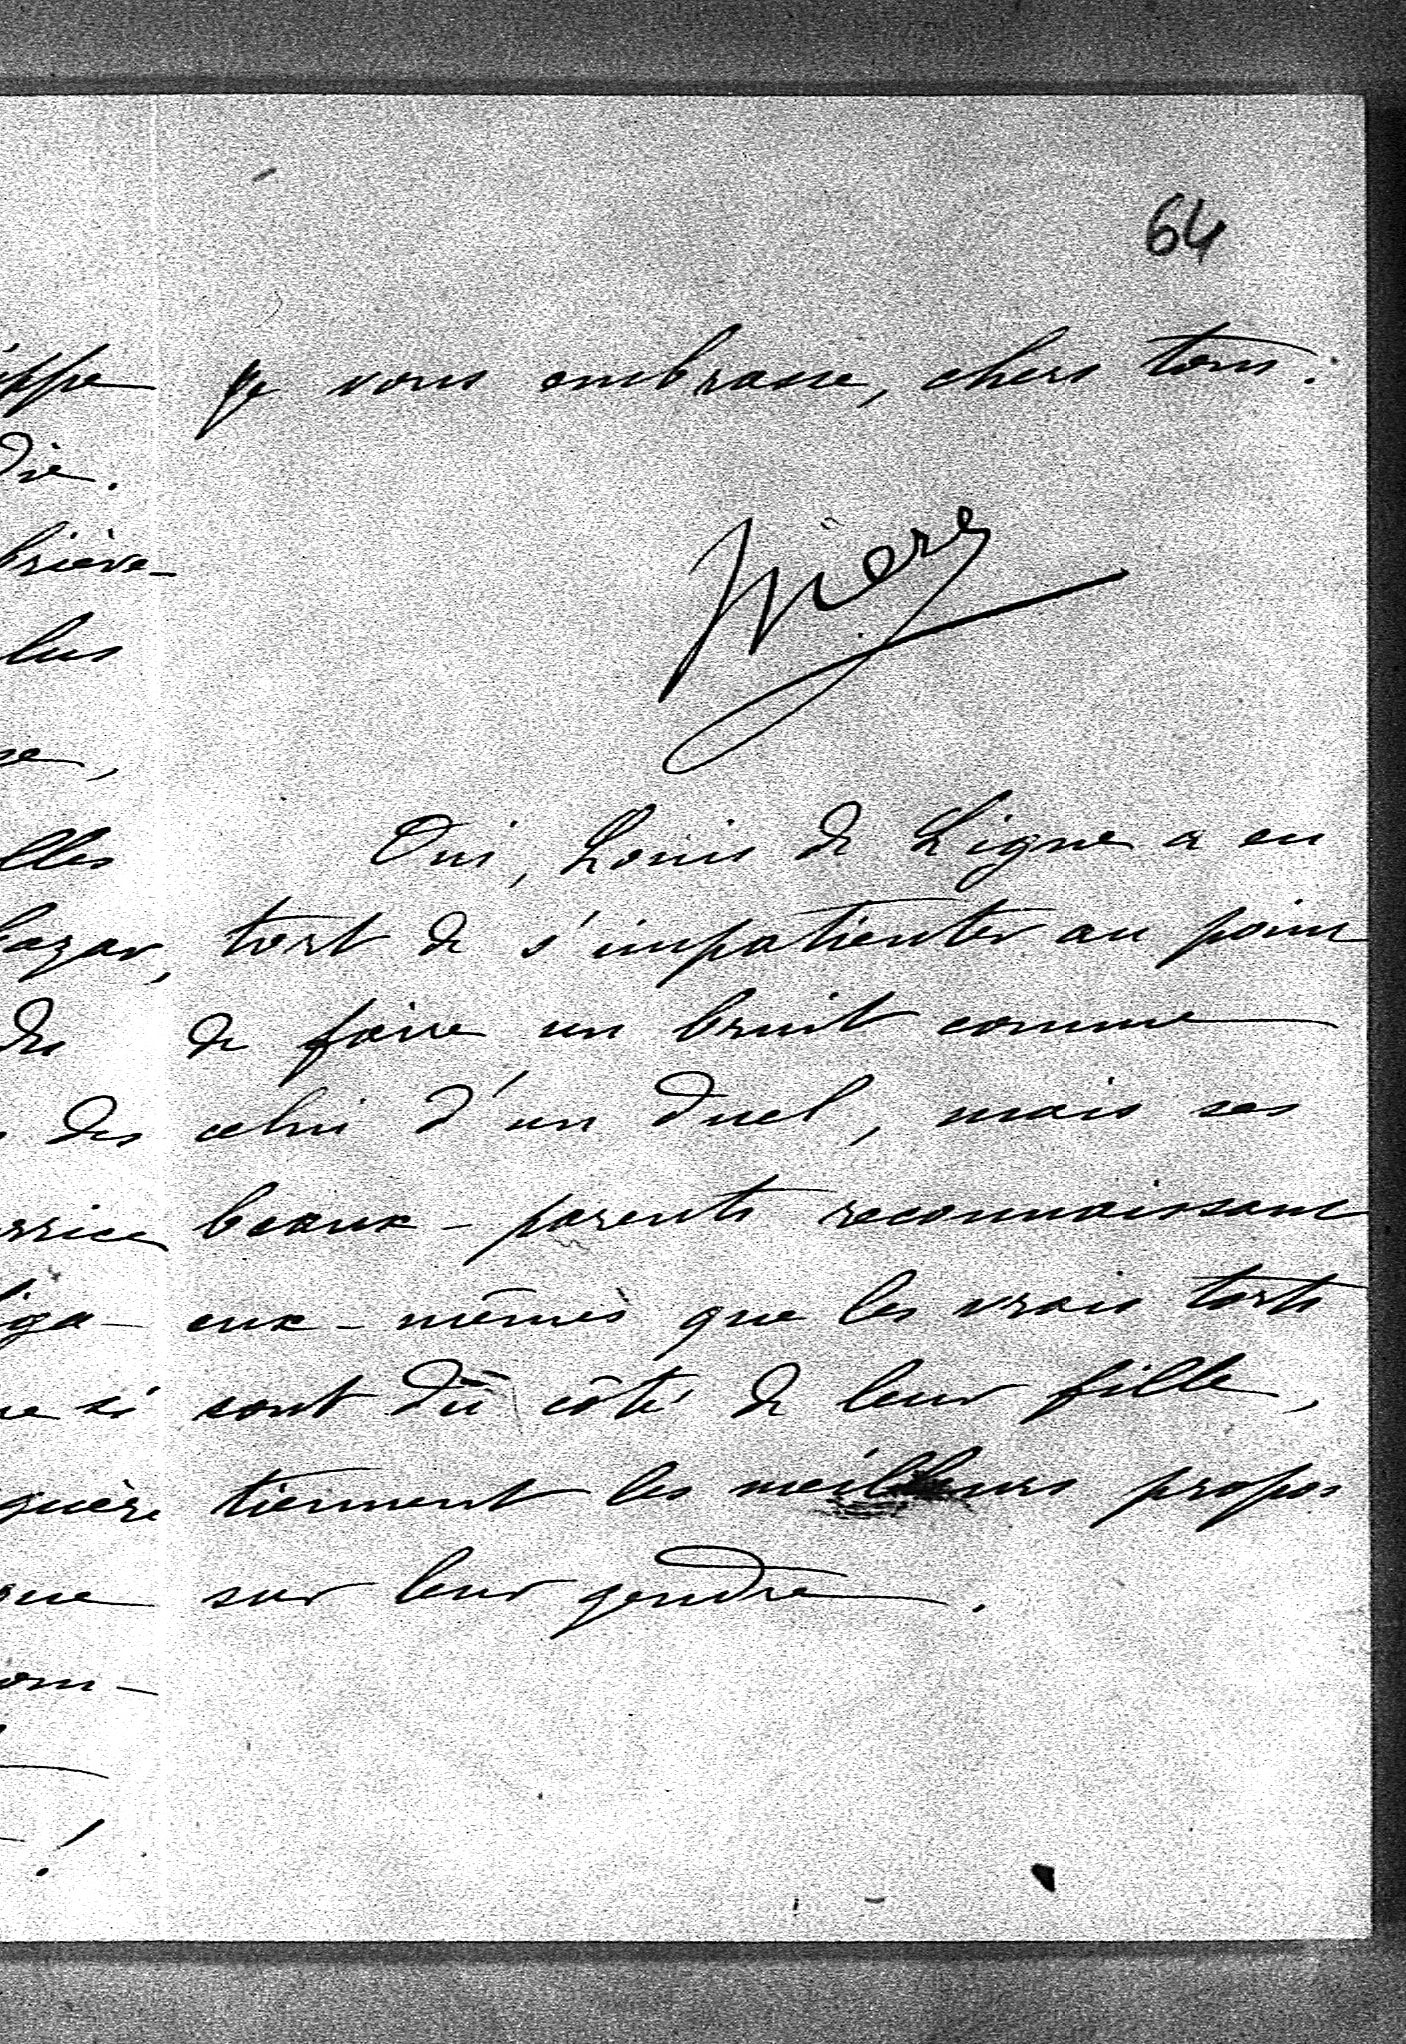 64
je vous embrasse, chers tous.
Oui, Louis de Ligne a eu
tort de s'impatienter au point
de faire un bruit comme
celui d'un duel, mais ses
beaux-parents reconnaissant
eux-mêmes que les vrais torts
sont du côté de leur fille,
tiennent les meilleurs propos
sur leur gendre.
ippe
die.
briève-
lus
se,
lles
bazar,
des
des
rrice
liga-
ne si
guère
que
om-
!